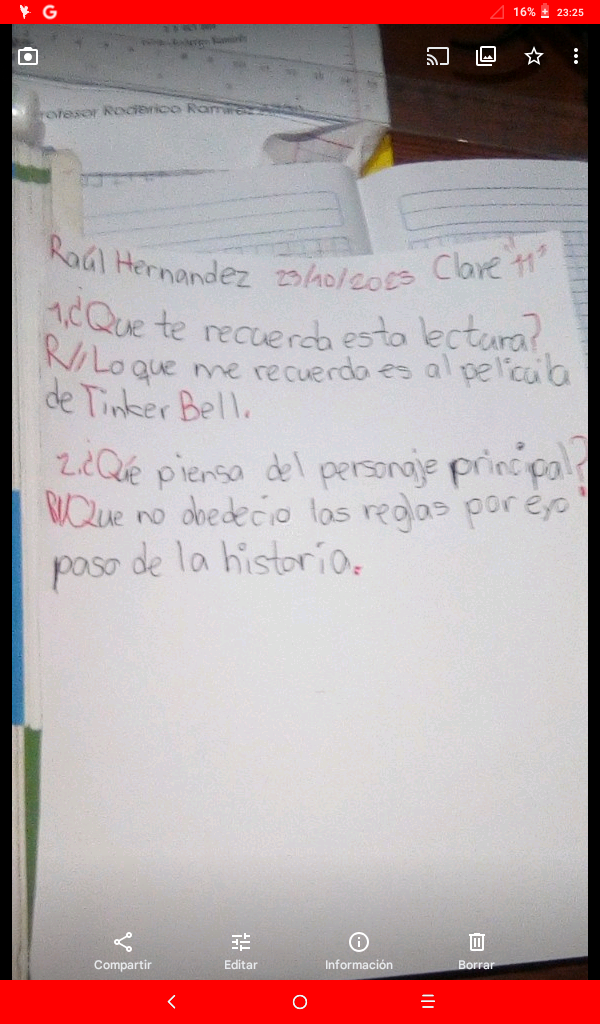 16% 23:25
Profesor Roderico Ramírez
Raúl Hernandez 23/10/2023 Clave "11"
1.¿Que te recuerda esta lectura?
R// Lo que me recuerda es al pelicula
de Tinker Bell.
2.¿Qué piensa del personaje principal?
R// Que no obedecio las reglas por eso
paso de la historia.
Compartir Editar Información Borrar